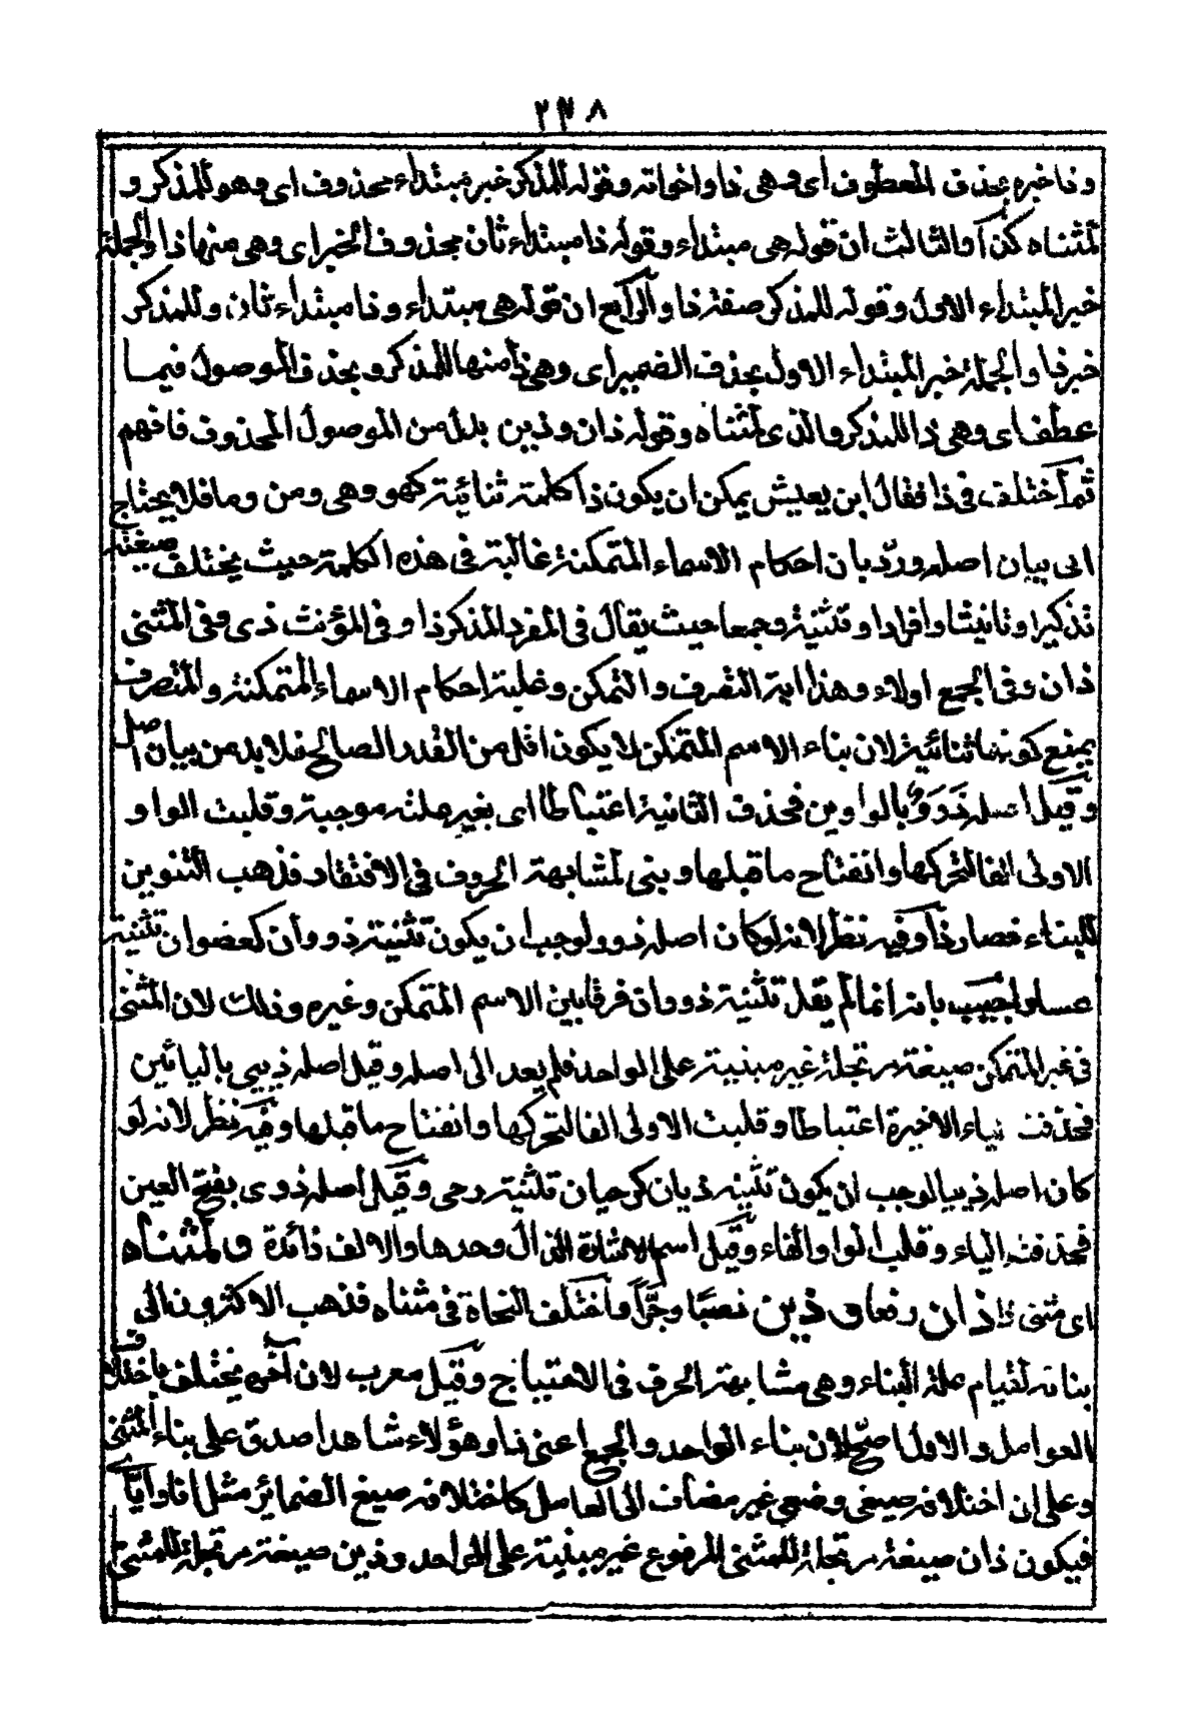 ٢٣٨
وذا خبره بحذف المعطوف اى وهى ذا واخواته وقوله للمذكر خبر مبتداء محذوف اى وهو للمذكر و
لمثناه كذا والثالث ان قوله هى مبتداء وقوله ذا مبتداء ثان محذوف الخبر اى وهى منها ذا والجملة
خبر المبتداء الاول وقوله للمذكر صفة ذا والرابع ان قوله هى مبتداء وذا مبتداء ثان وللمذكر
خبر ذا والجملة خبر المبتداء الاول بحذف الضمير اى وهى ذا منها للمذكر و بحذف الموصول فيما
عطف اى وهى ذا للمذكر والذى لمثناه وقوله ذان وذين بدل من الموصول المحذوف فافهم
ثم اختلف فى ذا فقال ابن يعيش يمكن ان يكون ذا كلمة ثنائية كهو وهى ومن وما فلا يحتاج
الى بيان اصله ورد بان احكام الاسماء المتمكنة غالبة فى هذه الكلمة حيث يختلف صيغته
تذكيرا وتانيثا وافرادا وتثنية وجمعا حيث يقال فى المفرد المذكر ذا وفى المؤنث ذى وفى المثنى
ذان وفى الجمع اولاء وهذا اية التصرف والتمكن وغلبة احكام الاسماء المتمكنة والمتصرف
يمنع كونها ثنائية لان بناء الاسم المتمكن لا يكون اقل من القدر الصالح فلا بد من بيان اصل
وقيل اصله ذَوَوٌ بالواوين فحذف الثانية اعتباطا اى بغير علة موجبة وقلبت الواو
الاولى الفا لتحركها وانفتاح ما قبلها وبنى لمشابهة الحروف فى الافتقاد فذهب التنوين
للبناء فصار ذا وفيه نظر لانه لو كان اصله ذوو لوجب ان يكون تثنية ذووان كعضوان تثنية
عسلو اجيب بانه انما لم يقل تثنية ذووان فرقا بين الاسم المتمكن وغيره وذلك لان المثنى
فى غير المتمكن صيغة مرتجلة غير مبنية على الواحد فلم يعد الى اصله وقيل اصله ذيى باليائين
فحذفت ياء الاخيرة اعتباطا وقلبت الاولى الفا لتحركها وانفتاح ما قبلها وفيه نظر لانه لو
كان اصله ذييا لوجب ان يكون تثنيه ذيان كرحيان تثنية رحى وقيل اصله ذوى بفتح العين
فحذفت الياء وقلب الواو الفاء وقيل اسم الاشارة الذال وحدها والالف زائدة ولمثناه
اى مثنى ذا ذان رفعا و ذين نصبًا وجرًّا واختلف النحاة فى مثناه فذهب الاكثرون الى
بنائه لقيام علة البناء وهى مشابهة الحرف فى الاحتياج وقيل معرب لان آخره يختلف باختلاف
العوامل والاول اصح لان بناء الواحد والجمع اعنى ذا وهؤلاء شاهدا صدق على بناء المثنى
وعلى ان اختلافه صيغى وضعى غير مضاف الى العامل كاختلافه صيغ الضمائر مثل انا واياى
فيكون ذان صيغة مرتجلة للمثنى المرفوع غير مبنية على الواحد وذين صيغة مرتجلة للمثنى